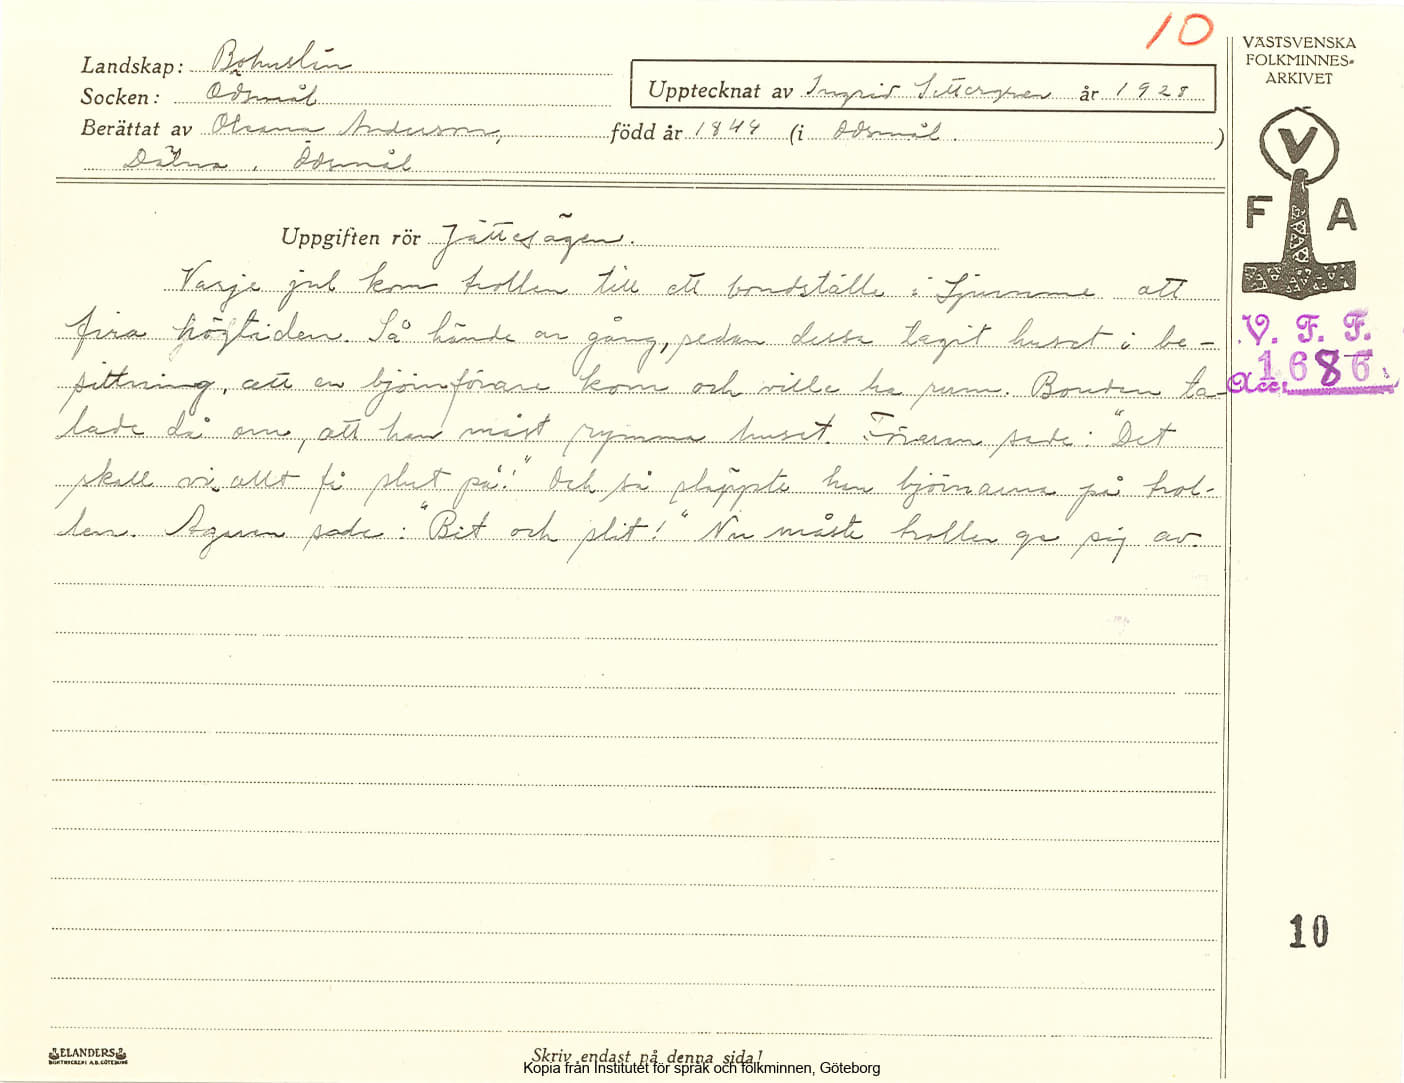 10
Landskap: Bohuslän
Socken: Ödsmål
Upptecknat av Ingrid Settergren år 1928
Berättat av Oleana Anderson, född år 1844 (i Ödsmål.)
Ödsmål
Uppgiften rör Jättesägen.
Varje jul kom trollen till ett bondställe i Ljumme att
fira högtiden. Så hände en gång, sedan dessa tagit huset i be-
sittning, att en björnförare kom och ville ha rum. Bonden ta-
lade då om, att han måst rymma huset. Föraren sade: "Det
skall vi allt få slut på!" Och så släppte han björnarna på trol-
len. Ägaren sade: "Bit och slit!" Nu måste trollen ge sig av.
VÄSTSVENSKA
FOLKMINNES-
ARKIVET
V
F A
V. F. F.
Acc. 1686.
10
ELANDERS
BOKTRYCKERI A.B. GÖTEBORG
Skriv endast på denna sida!
Kopia från Institutet för språk och folkminnen, Göteborg